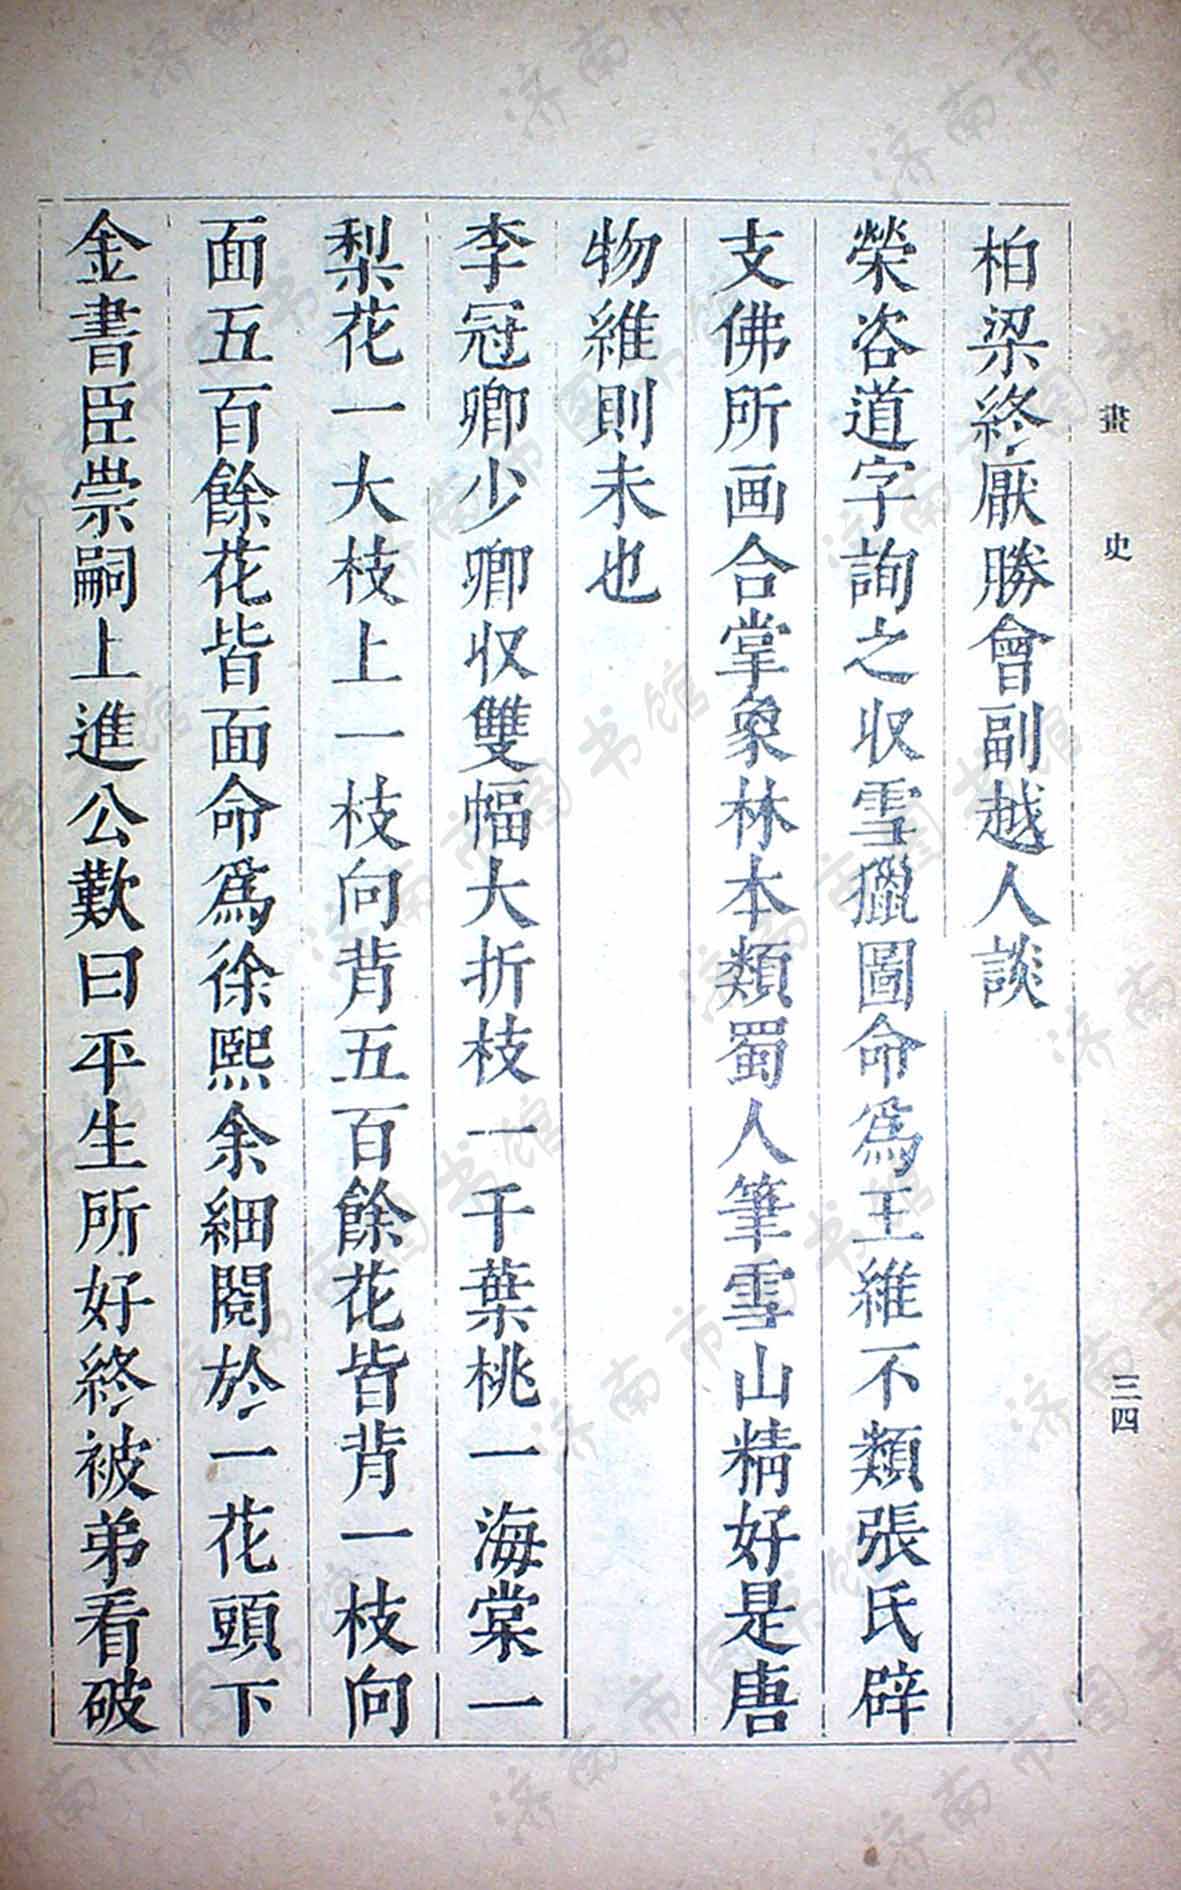 畫史
三四
柏梁終厭勝會副越人談
榮咨道字詢之収雪獵圖命爲王維不類張氏辟
支佛所画合掌象林本類蜀人筆雪山精好是唐
物維則未也
李冠卿少卿収雙幅大折枝一千葉桃一海棠一
梨花一大枝上一枝向背五百餘花皆背一枝向
面五百餘花皆面命爲徐熙余細閱於一花頭下
金書臣崇嗣上進公歎曰平生所好終被弟看破
济南市图书馆